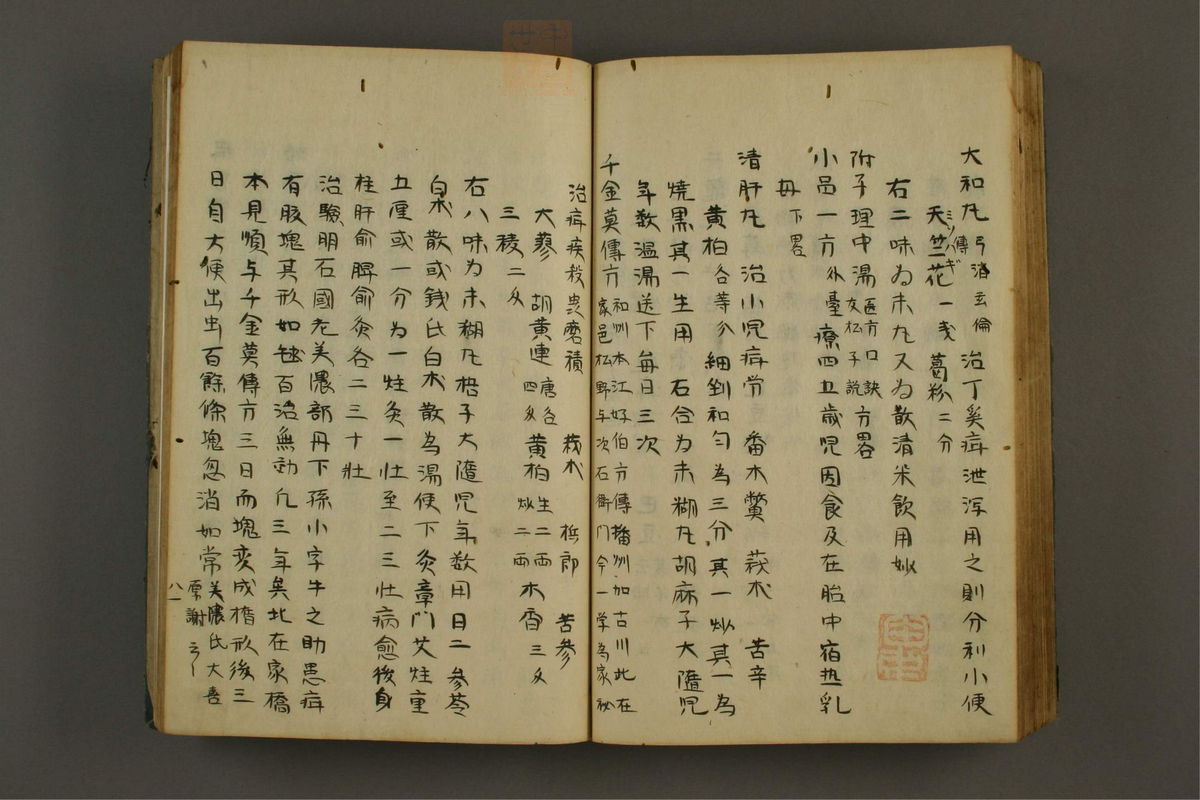 大和丸 傳 玄倫 治丁奚疳泄泻用之則分利小便
天竺花 一戔 葛粉 二分
右二味为末丸又为散清米飲用妙
附子理中湯 医方口訣 友松子説 方畧
小品一方 外臺 療四五歳児因食及在胎中宿热乳
母 下畧
清肝丸 治小児疳労 番木鱉 莪朮 苦辛
黄柏 各等分 細剉和匀為三分其一炒其一為
燒黒其一生用 右合为末糊丸胡麻子大隨児
年数温湯送下毎日三次
千金莫傳方 和州本江好伯方傳播州加古川北在
家邑松野与次右衛門今一学為家秘
治疳疾殺虫磨積 莪朮 梹郎 苦参
大蓼 胡黄連 唐各四匁 黄柏 生二両炒二両 木香 三匁
三稜 二匁
右八味为末糊丸梧子大隨児年数用日二 参苓
白朮散或銭氏白朮散為湯使下灸章門艾炷重
五厘或一分为一炷灸一壮至二三壮病愈後身
柱肝俞脾俞灸各二三十壮
治驗明石國老美濃部丹下孫小字牛之助患疳
有腹塊其形如毬百治無効凡三年矣北在家橋
本見順与千金莫傳方三日而塊变成楕形後三
日自大便出虫百餘條塊忽消如常 美濃氏大喜
厚謝云〻
八一